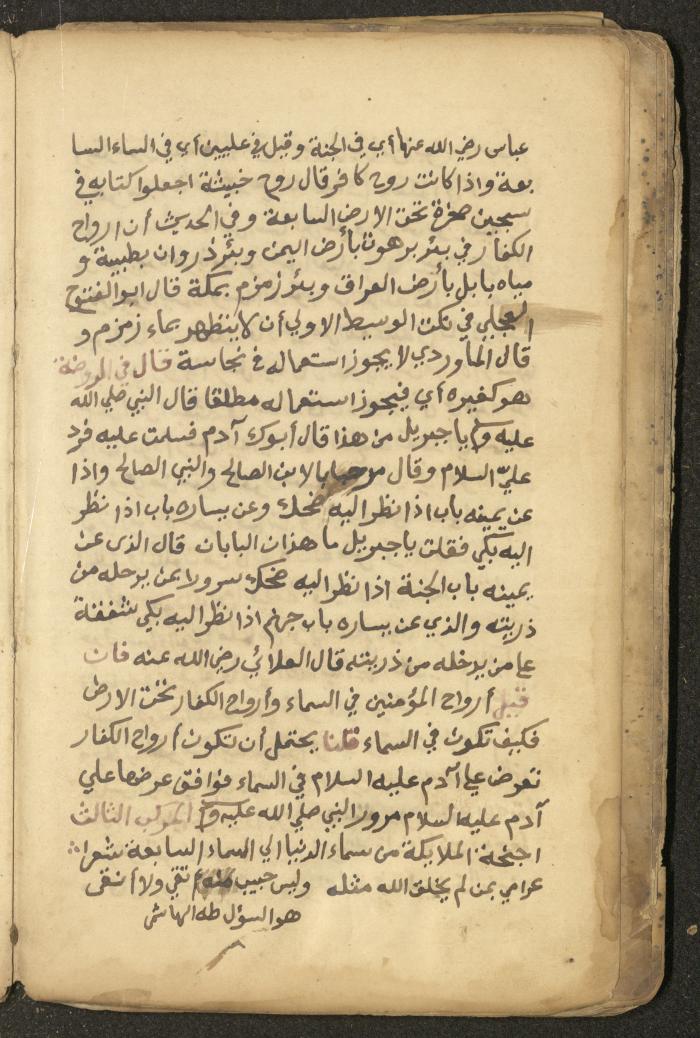 عباس رضي الله عنهما أي في الجنة وقيل في عليين أي في السماء السا
بعة واذا كانت روح كافر قال روح خبيثة اجعلوا كتابه في
سجين صخرة تحت الارض السابعة وفي الحديث أن ارواح
الكفار في بئر برهوت بأرض اليمن وبئر ذروان بطيبة و
مياه بابل بأرض العراق وبئر زمزم بمكة قال ابو الفتوح
العجلي في نكت الوسيط الاولي أن لا يتطهر بماء زمزم و
قال الماوردي لا يجوز استعماله في نجاسة قال في الروضة
هو كغيره أي فيجوز استعماله مطلقا قال النبي صلي الله
عليه وسلم يا جبريل من هذا قال أبوك آدم فسلمت عليه فرد
عليّ السلام وقال مرحبا بالابن الصالح والنبي الصالح واذا
عن يمينه باب اذا نظر اليه ضحك وعن يساره باب اذا نظر
اليه بكي فقلت يا جبريل ما هذان البابان قال الذى عن
يمينه باب الجنة اذا نظر اليه ضحك سرورا بمن يدخله من
ذريته والذي عن يساره باب جهنم اذا نظر اليه بكي شفقة
علي من يدخله من ذريته قال العلائي رضي الله عنه فان
قيل أرواح المؤمنين في السماء وأرواح الكفار تحت الارض
فكيف تكون في السماء قلنا يحتمل أن تكون أرواح الكفار
تعرض علي آدم عليه السلام في السماء فوافق عرضها علي
آدم عليه السلام مرور النبي صلي الله عليه وسلم المركب الثالث
اجنحة الملايكة من سماء الدنيا الي السماء السابعة شعرا
غرامي بمن لم يخلق الله مثله وليس حبيب منه أتقي ولا أنقى
هو السؤل طه الهاشمي